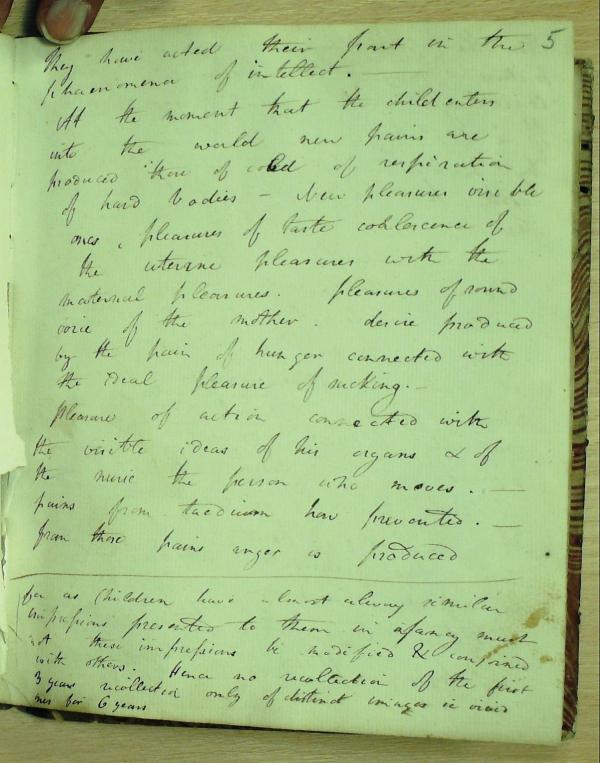 5
They have acted their part in the
phaenomena of intellect. —
At the moment that the child enters
into the world new pains are
produced those of cold of respiration
of hard bodies – New pleasures visible
ones, pleasures of taste coalescence of
the uterine pleasures with the
maternal pleasures. pleasures of sound
voice of the mother. desire produced
by the pain of hunger connected with
the ideal pleasure of sucking. –
pleasure of action connected with
the visible ideas of his organs & of
the nurse the person who moves. —
pains from taedium how prevented. —
from those pains anger is produced
for as Children have almost alway similar
impressions presented to them in infancy must
not these impressions be modified & conjoined
with others. Hence no recollection of the first
3 years recollected only of distinct images ie vivid
ones for 6 years